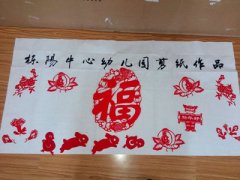 栎阳中心幼儿园剪纸作品
福